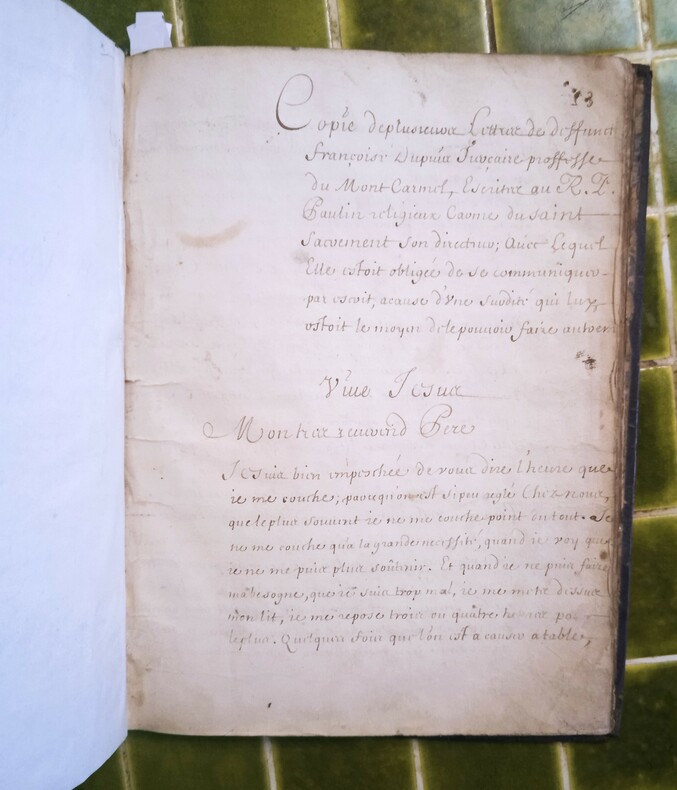 13
Copie de plusieurs Lettres de deffuncte
françoise Dupuis Jusçaire proffesse
du Mont Carmel, Escritte au R. P.
Paulin religieux Carme du saint
Sacrement son directeur; Avec Lequel
Elle estoit obligée de se communiquer
par escrit, a cause d'Vne surdité qui luy
ostoit le moyen de le pouvoir faire autrem
Viue Jesus
Mon tres reuerend Pere
Je suis bien empeschée de vous dire l'heure que
ie me couche; parce qu'on est si peu reglé Chez nous,
que le plus souuent ie ne me couche point du tout. Je
ne me couche qu'a la grande necessité, quand ie voy que
ie ne me puis plus soutenir. Et quand ie ne puis faire
ma besogne, que ie suis trop mal, ie me mets dessus
mon lit, ie me repose trois ou quatre heures po
le plus. Quelques fois que l'on est a causer a table,